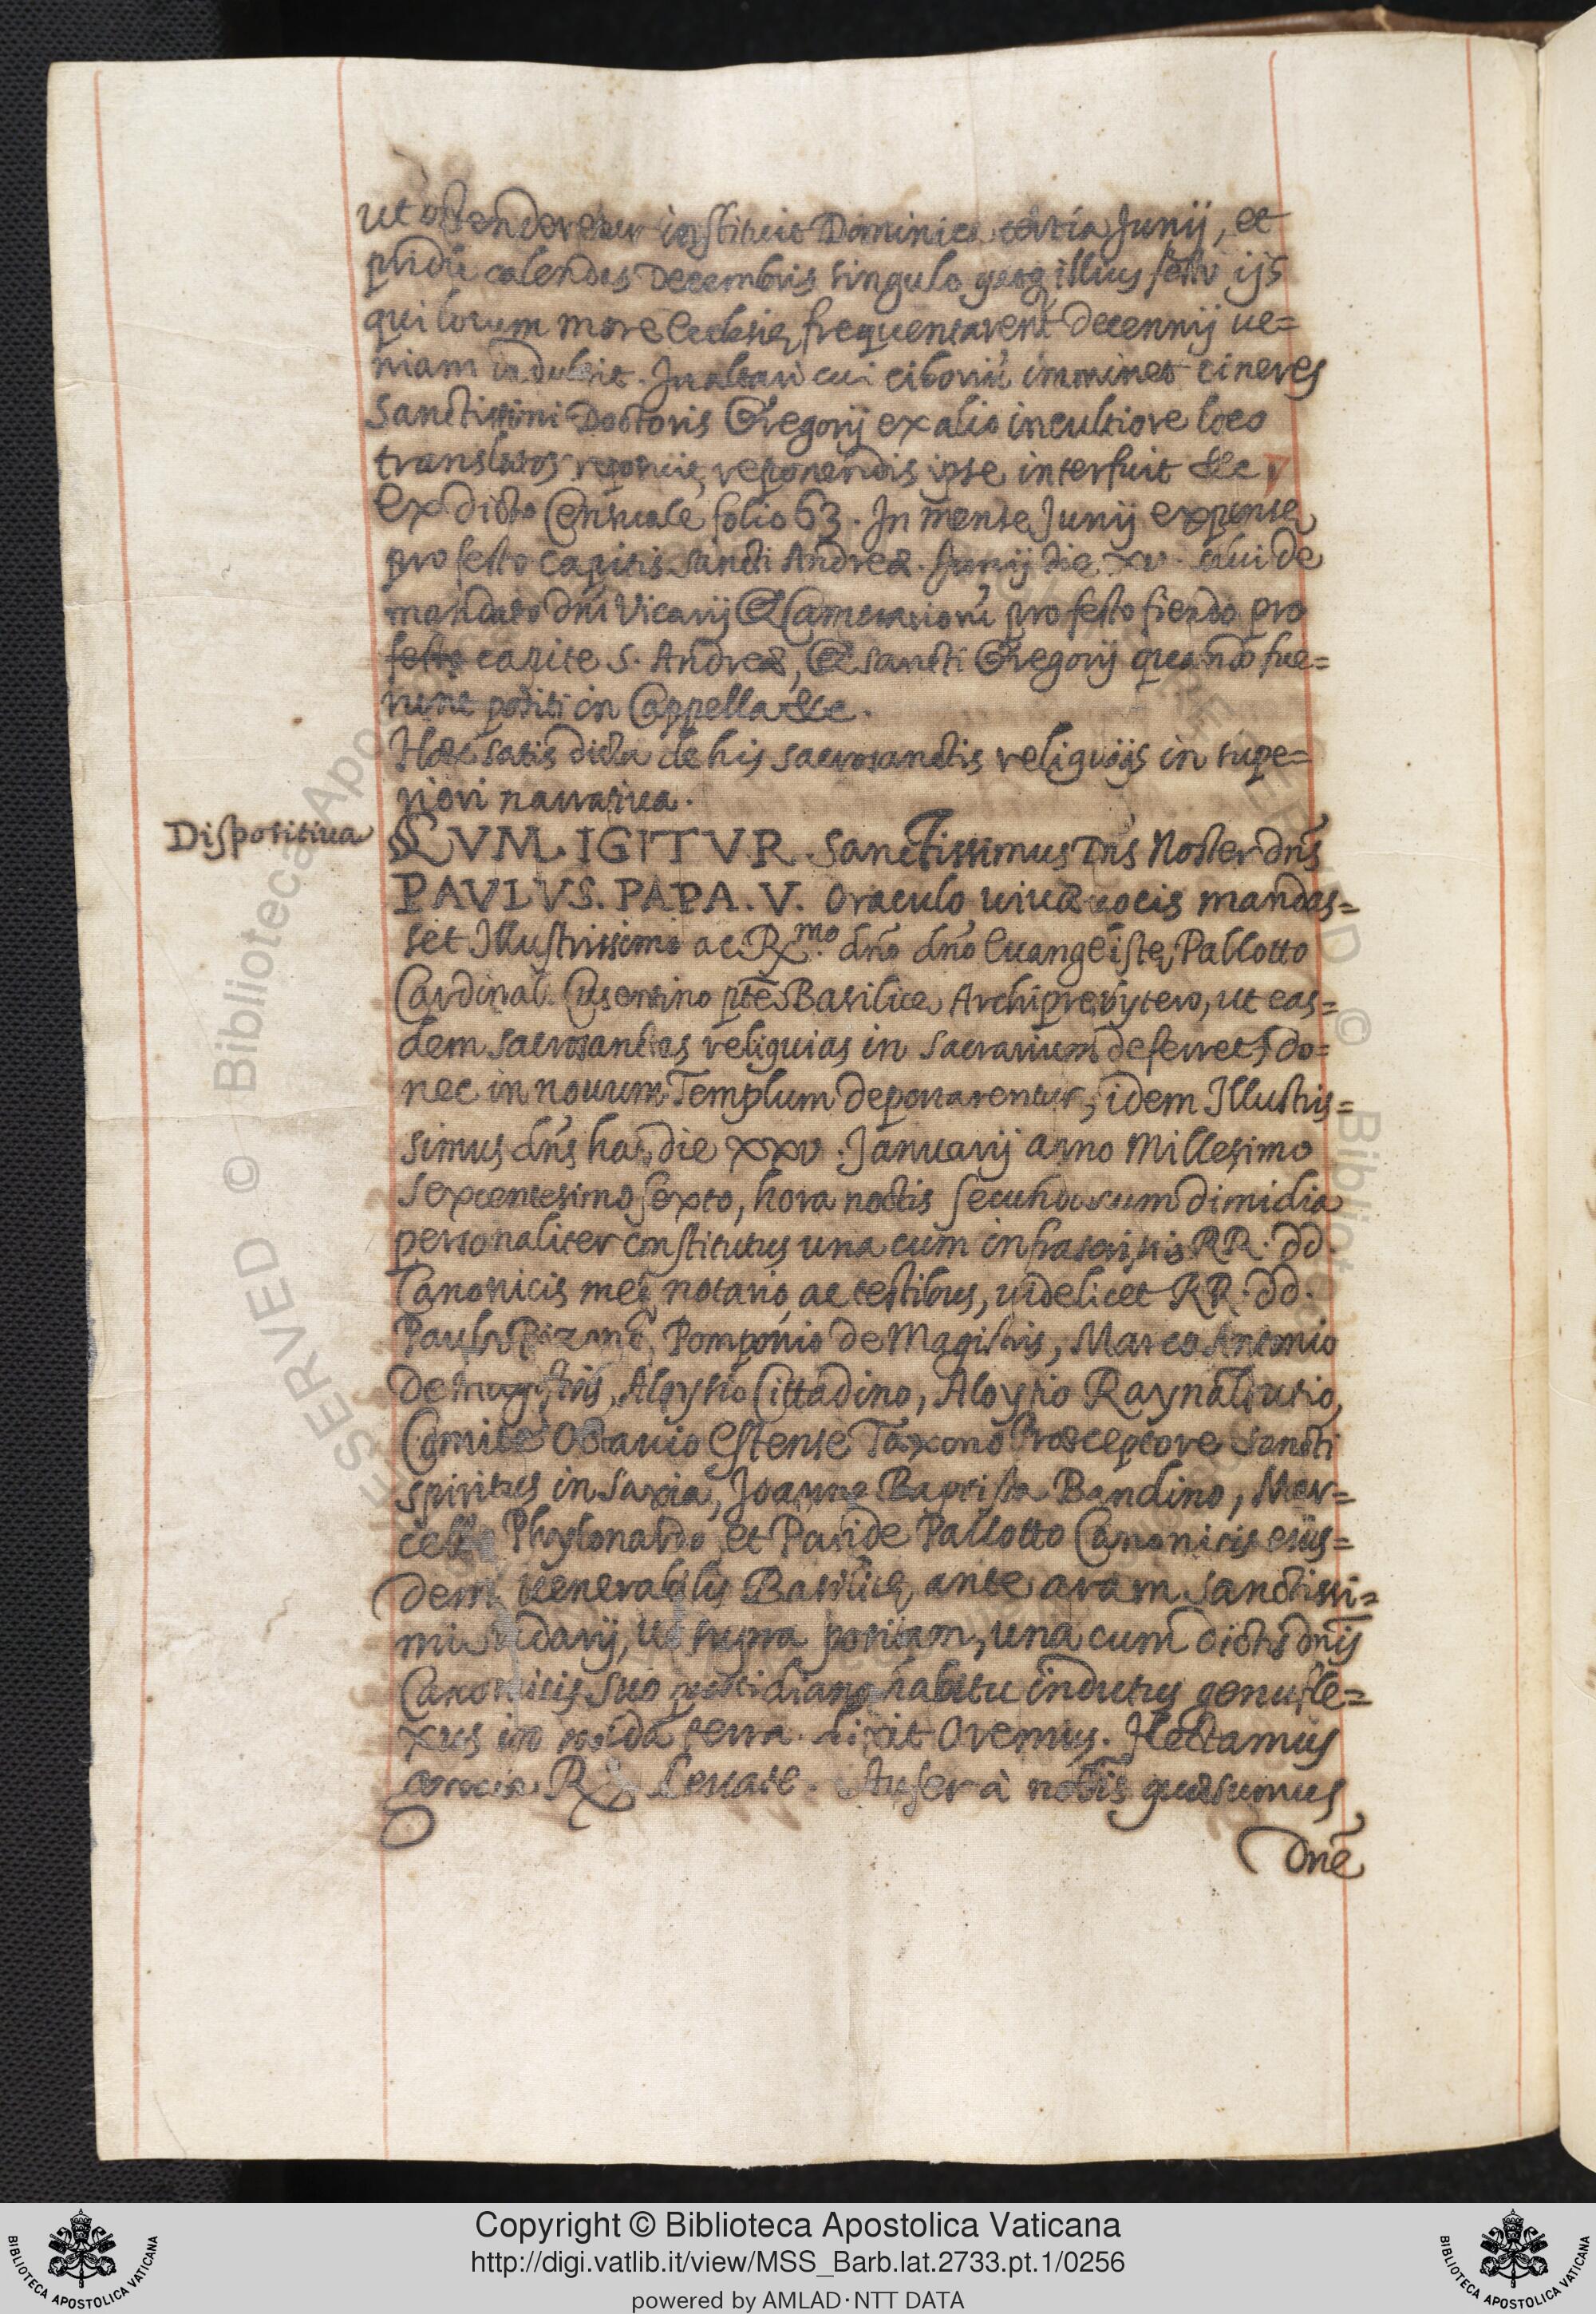 ut ostenderetur instituit Dominica tertia Junij, et
pridie calendas Decembris singulo quoq illius festo ijs
qui locum more Ecclesię frequentarent decennij ue=
niam indulsit. In altari cui ciboriũ imminet cineres
Sanctissimi Doctoris Gregorij ex alio incultiore loco
translatos reposuit, reponendis ipse interfuit &c,
Ex dicto Censuale folio 63. In mense Junij expensę
pro festo capitis sancti Andreæ. Junij die xv. solui de
mandato dñi Vicarij & Camerariorũ pro festo fiendo pro
festo capite S. Andreæ, & sancti Gregorij quando fue=
runt positi in Cappella &c.
Hæc satis dicta de his sacrosanctis reliquijs in supe=
riori narratiua.
Dispositiua
CVM. IGITVR Sanctissimus Dñs Noster dñs
PAVLVS. PAPA. V. Oraculo uiuæ uocis mandas=
set Illustrissimo ac R.mo dño dño Euangelistę Pallotto
Cardinali Cusentino ptę Basilicę Archipresbytero, ut eas=
dem sacrosanctas reliquias in sacrarium deferret, do=
nec in nouum Templum deportarentur, idem Illustris=
simus dñs hac die xxv. Januarij anno Millesimo
sexcentesimo sexto, hora noctis secunda cum dimidia
personaliter constitutus una cum infrascriptis RR. dd.
Canonicis meq notario, ac testibus, uidelicet RR. dd.
Paulo Bizono, Pomponio de Magistris, Marco Antonio
De magistris, Aloysio Cittadino, Aloysio Raynaldutio,
Comite Octauio Estense Taxono Præceptore Sancti
spiritus in Saxia, Joanne Baptista Bandino, Mar=
cello Phylonardo, et Paride Pallotto Canonicis eius=
dem Venerabilis Basilicę, ante aram sanctissi=
mi sudarij, ut supra positam, una cum dictis dñis
Canonicis suo quotidiano habitu indutus genufle=
xus in nuda terra dixit Oremus. Flectamus
genua R. Leuate. Aufer à nobis quæsumus
Dñe
© Biblioteca Apo
ESERVED
© Bibliotec
Copyright © Biblioteca Apostolica Vaticana
http://digi.vatlib.it/view/MSS_Barb.lat.2733.pt.1/0256
powered by AMLAD·NTT DATA
BIBLIOTECA APOSTOLICA VATICANA
BIBLIOTECA APOSTOLICA VATICANA